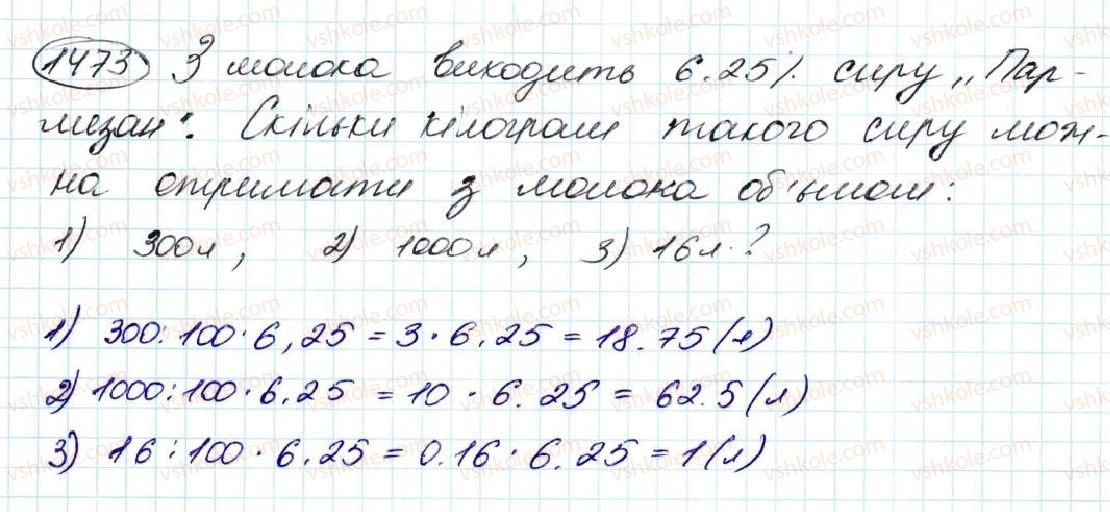 1473 З молока виходить 6.25% сиру „Пар-
мезан". Скільки кілограм такого сиру мож-
на отримати з молока об'ємом:
1) 300л, 2) 1000л, 3) 16л.?
1) 300:100·6,25 = 3·6.25 = 18.75 (л)
2) 1000:100·6.25 = 10·6.25 = 62.5 (л)
3) 16:100·6.25 = 0.16·6.25 = 1 (л)